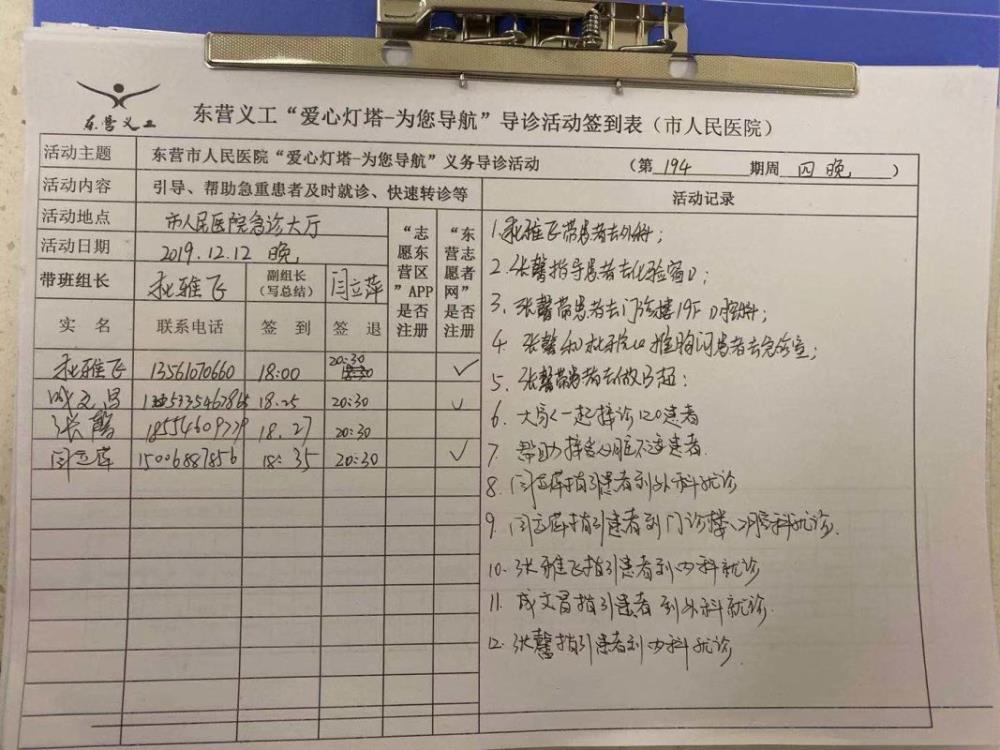 东营义工
东营义工“爱心灯塔-为您导航”导诊活动签到表（市人民医院）
活动主题 东营市人民医院“爱心灯塔-为您导航”义务导诊活动 （第 194 期周 四 晚 ）
活动内容 引导、帮助急重患者及时就诊、快速转诊等
活动地点 市人民医院急诊大厅
活动日期 2019.12.12 晚
带班组长 雅飞 副组长（写总结） 闫立萍
“志愿东营区”APP是否注册
“东营志愿者网”是否注册
实 名 联系电话 签 到 签 退
雅飞 13561070660 18:00 20:30 ✓
成文昌 18.25 20:30 ✓
张馨 18.27 20:30
闫立萍 15006887856 18:35 20:30 ✓
活动记录
1.雅飞带患者去外科；
2.张馨指导患者去化验窗口；
3.张馨带患者去门诊楼19F口腔科；
4.张馨和推胸闷患者去急诊室；
5.张馨带患者去做B超；
6.大家一起接诊120患者
7.帮助接舍心脏不适患者.
8.闫立萍指引患者到外科就诊
9.闫立萍指引患者到门诊楼口腔科就诊.
10.张雅飞指引患者到内科就诊
11.成文昌指引患者到外科就诊.
12.张馨指引患者到内科就诊.